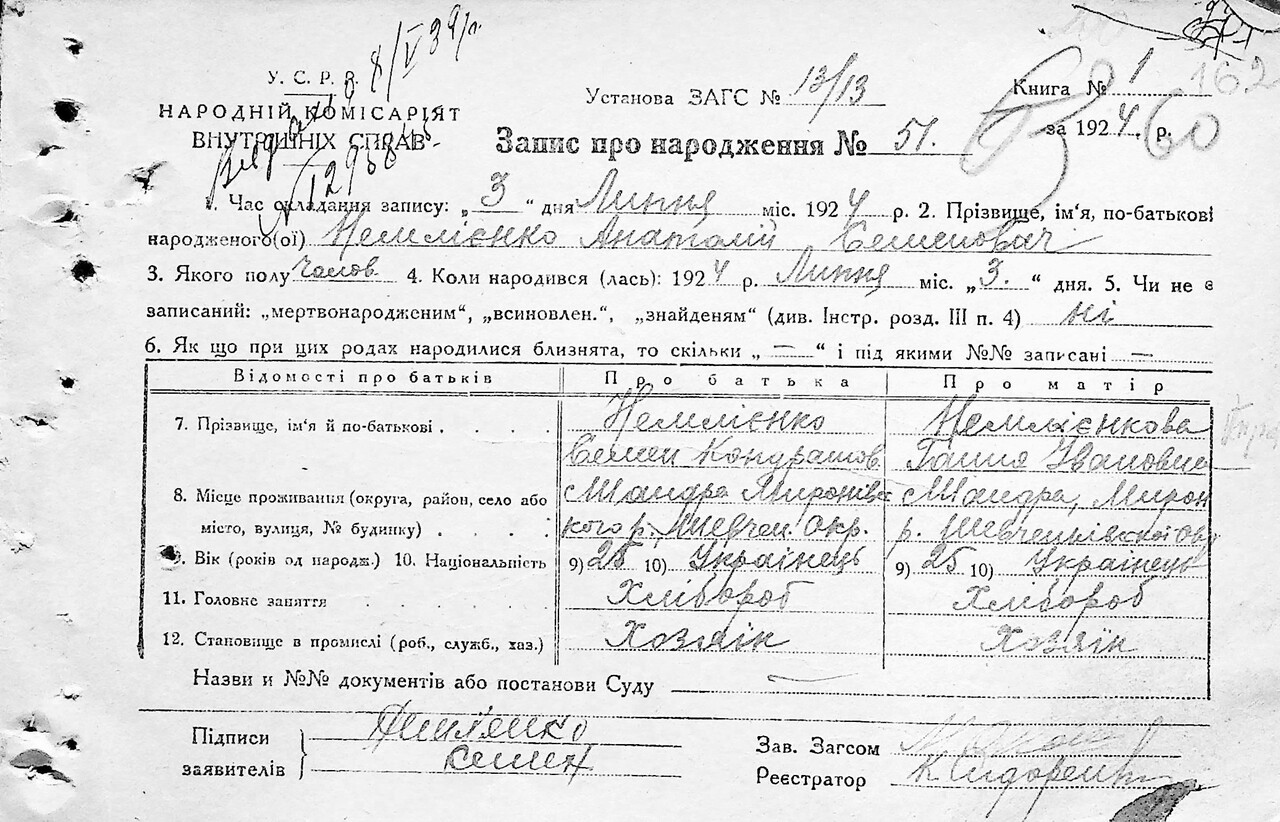 8/V 39 г.
У. С. Р. Р.
НАРОДНІЙ КОМІСАРІЯТ
ВНУТРІШНІХ СПРАВ
Установа ЗАГС № 13/13
Книга № 1
162
за 1924 р.
60
Запис про народження № 51.
1. Час складання запису: „3“ дня Липня міс. 1924 р. 2. Прізвище, ім‘я, по-батькові
народженого(ої) Немлієнко Анатолій Семенович
3. Якого полу Чолов. 4. Коли народився (лась): 1924 р. Липня міс. „3.“ дня. 5. Чи не є
записаний: „мертвонародженим“, „всиновлен.“, „знайденям“ (див. Інстр. розд. III п. 4) ні
6. Як що при цих родах народилися близнята, то скільки „—“ і під якими №№ записані —
Відомості про батьків Про батька Про матір
7. Прізвище, ім‘я й по-батькові . . . . Немлієнко Немлієнкова
Семен Кондратов. Ганна Івановна
8. Місце проживання (округа, район, село або Шандра Миронівс Шандра, Мирон
місто, вулиця, № будинку) . . . . кого р., Шевчен. Окр. р. Шевченківської Окр
9. Вік (років од народж.) 10. Національність 9) 25 10) Українець 9) 25 10) Українець
11. Головне заняття . . . . . Хлібороб Хлібороб
12. Становище в промислі (роб., служб., хаз.) Хозяїн Хозяїн
Назви и №№ документів або постанови Суду —
Підписи
заявителів
Семен
Зав. Загсом
Реєстратор К Сидоренко